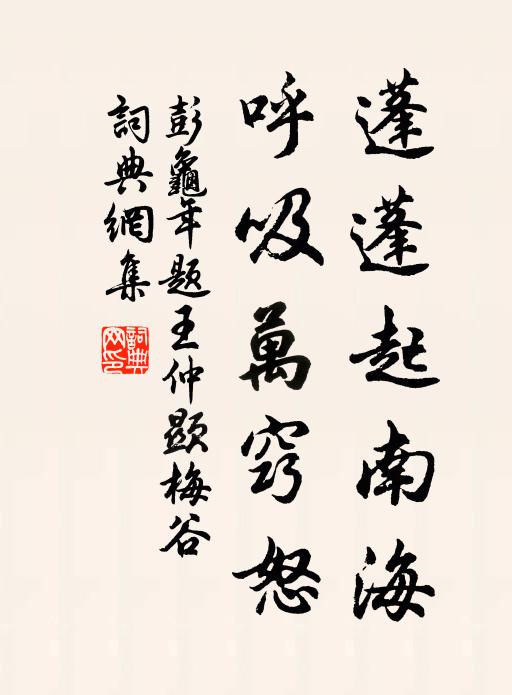 蓬蓬起南海
呼吸萬竅怒
彭龜年題王仲顯梅谷
詞典網集
詞典網印